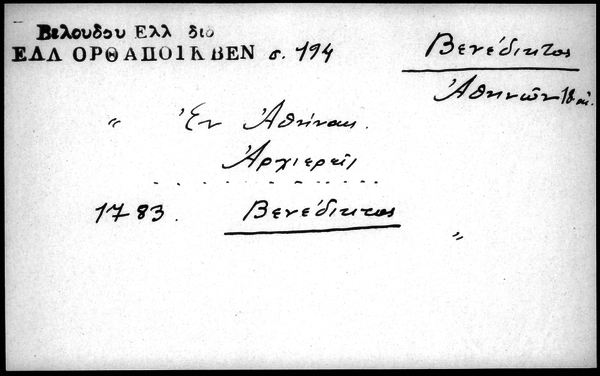 Βελουδου Ελλ διο
ΕΛΛ ΟΡΘ ΑΠΟΙΚ ΒΕΝ σ. 194
Βενέδικτος
Ἀθηνῶν 18 αἰ.
" Ἐν Ἀθήναις.
Ἀρχιερεῖς
. . . . . . . . . . . .
1783. Βενέδικτος
"